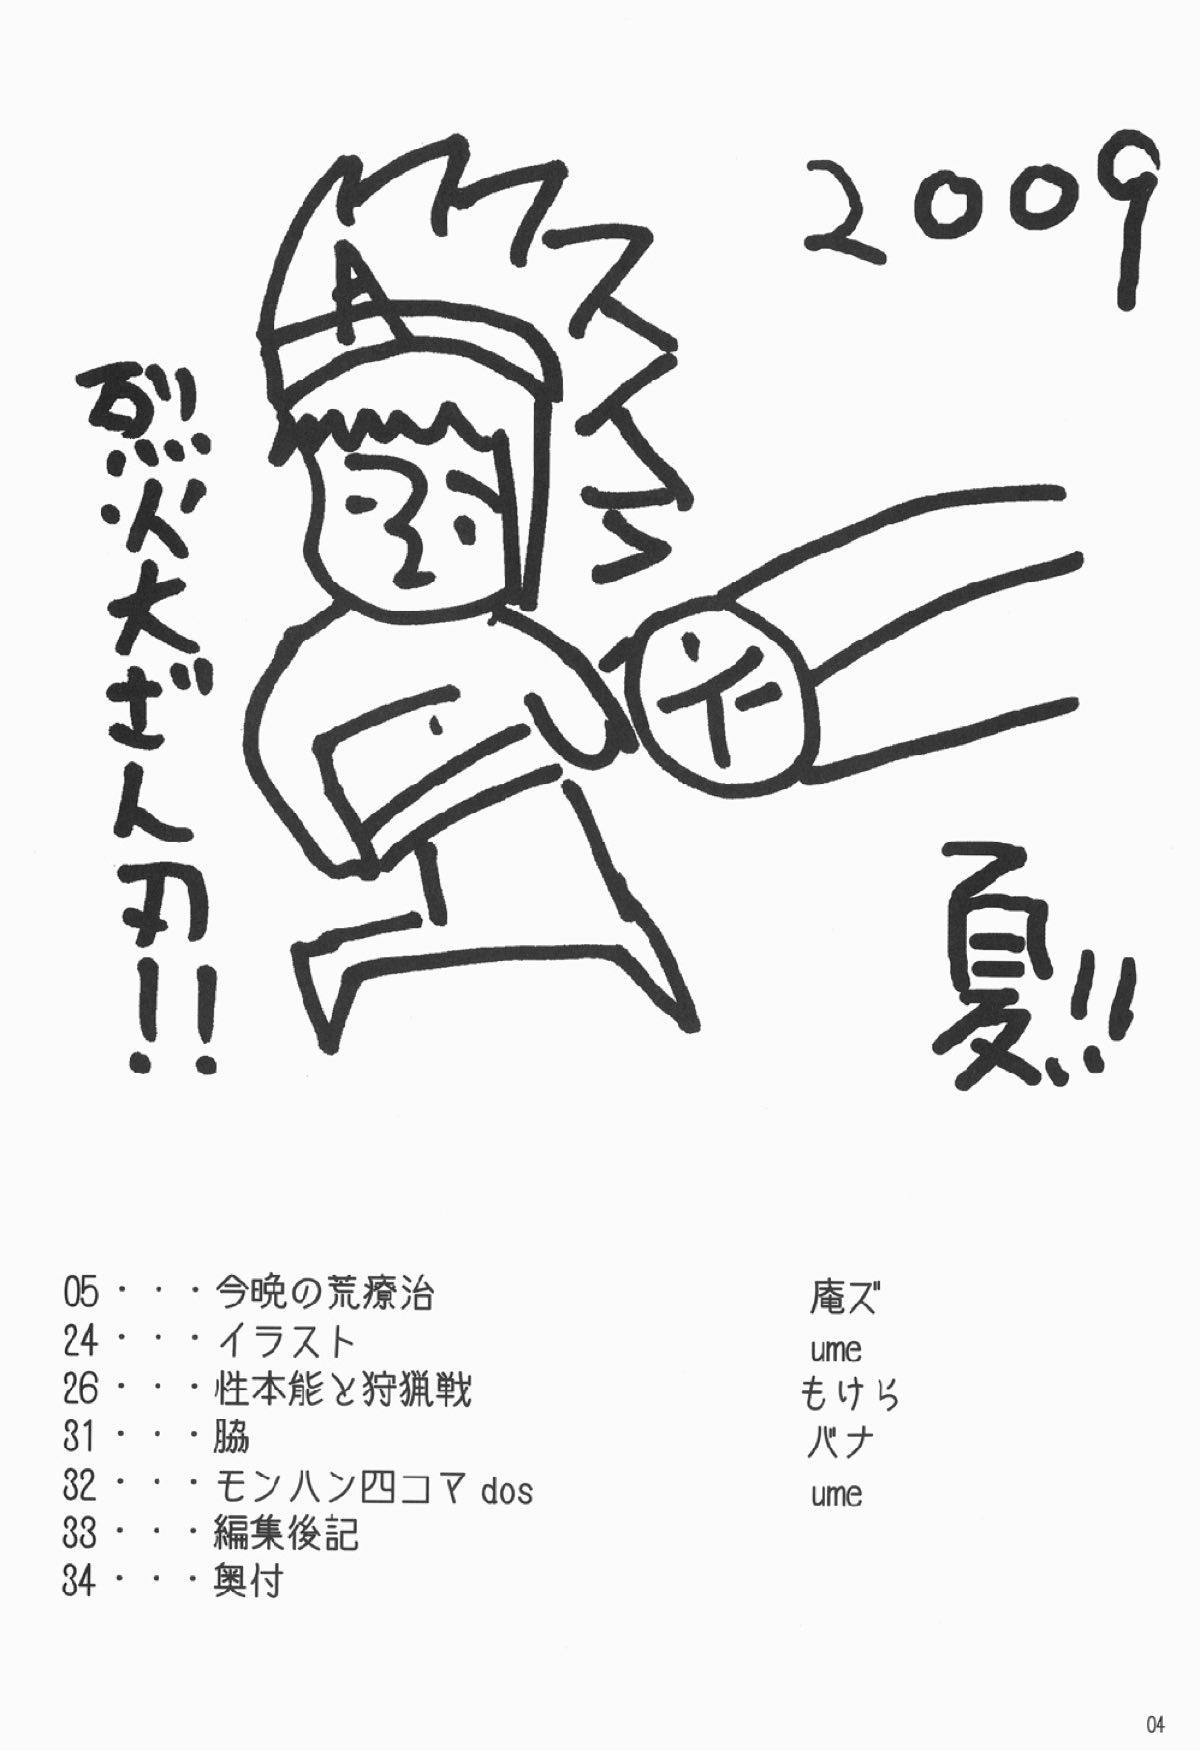 2009
A
烈火大ざん刃!!
ネ
夏!!
05・・・今晩の荒療治 庵ズ
24・・・イラスト ume
26・・・性本能と狩猟戦 もけら
31・・・脇 バナ
32・・・モンハン四コマ dos ume
33・・・編集後記
34・・・奥付
04